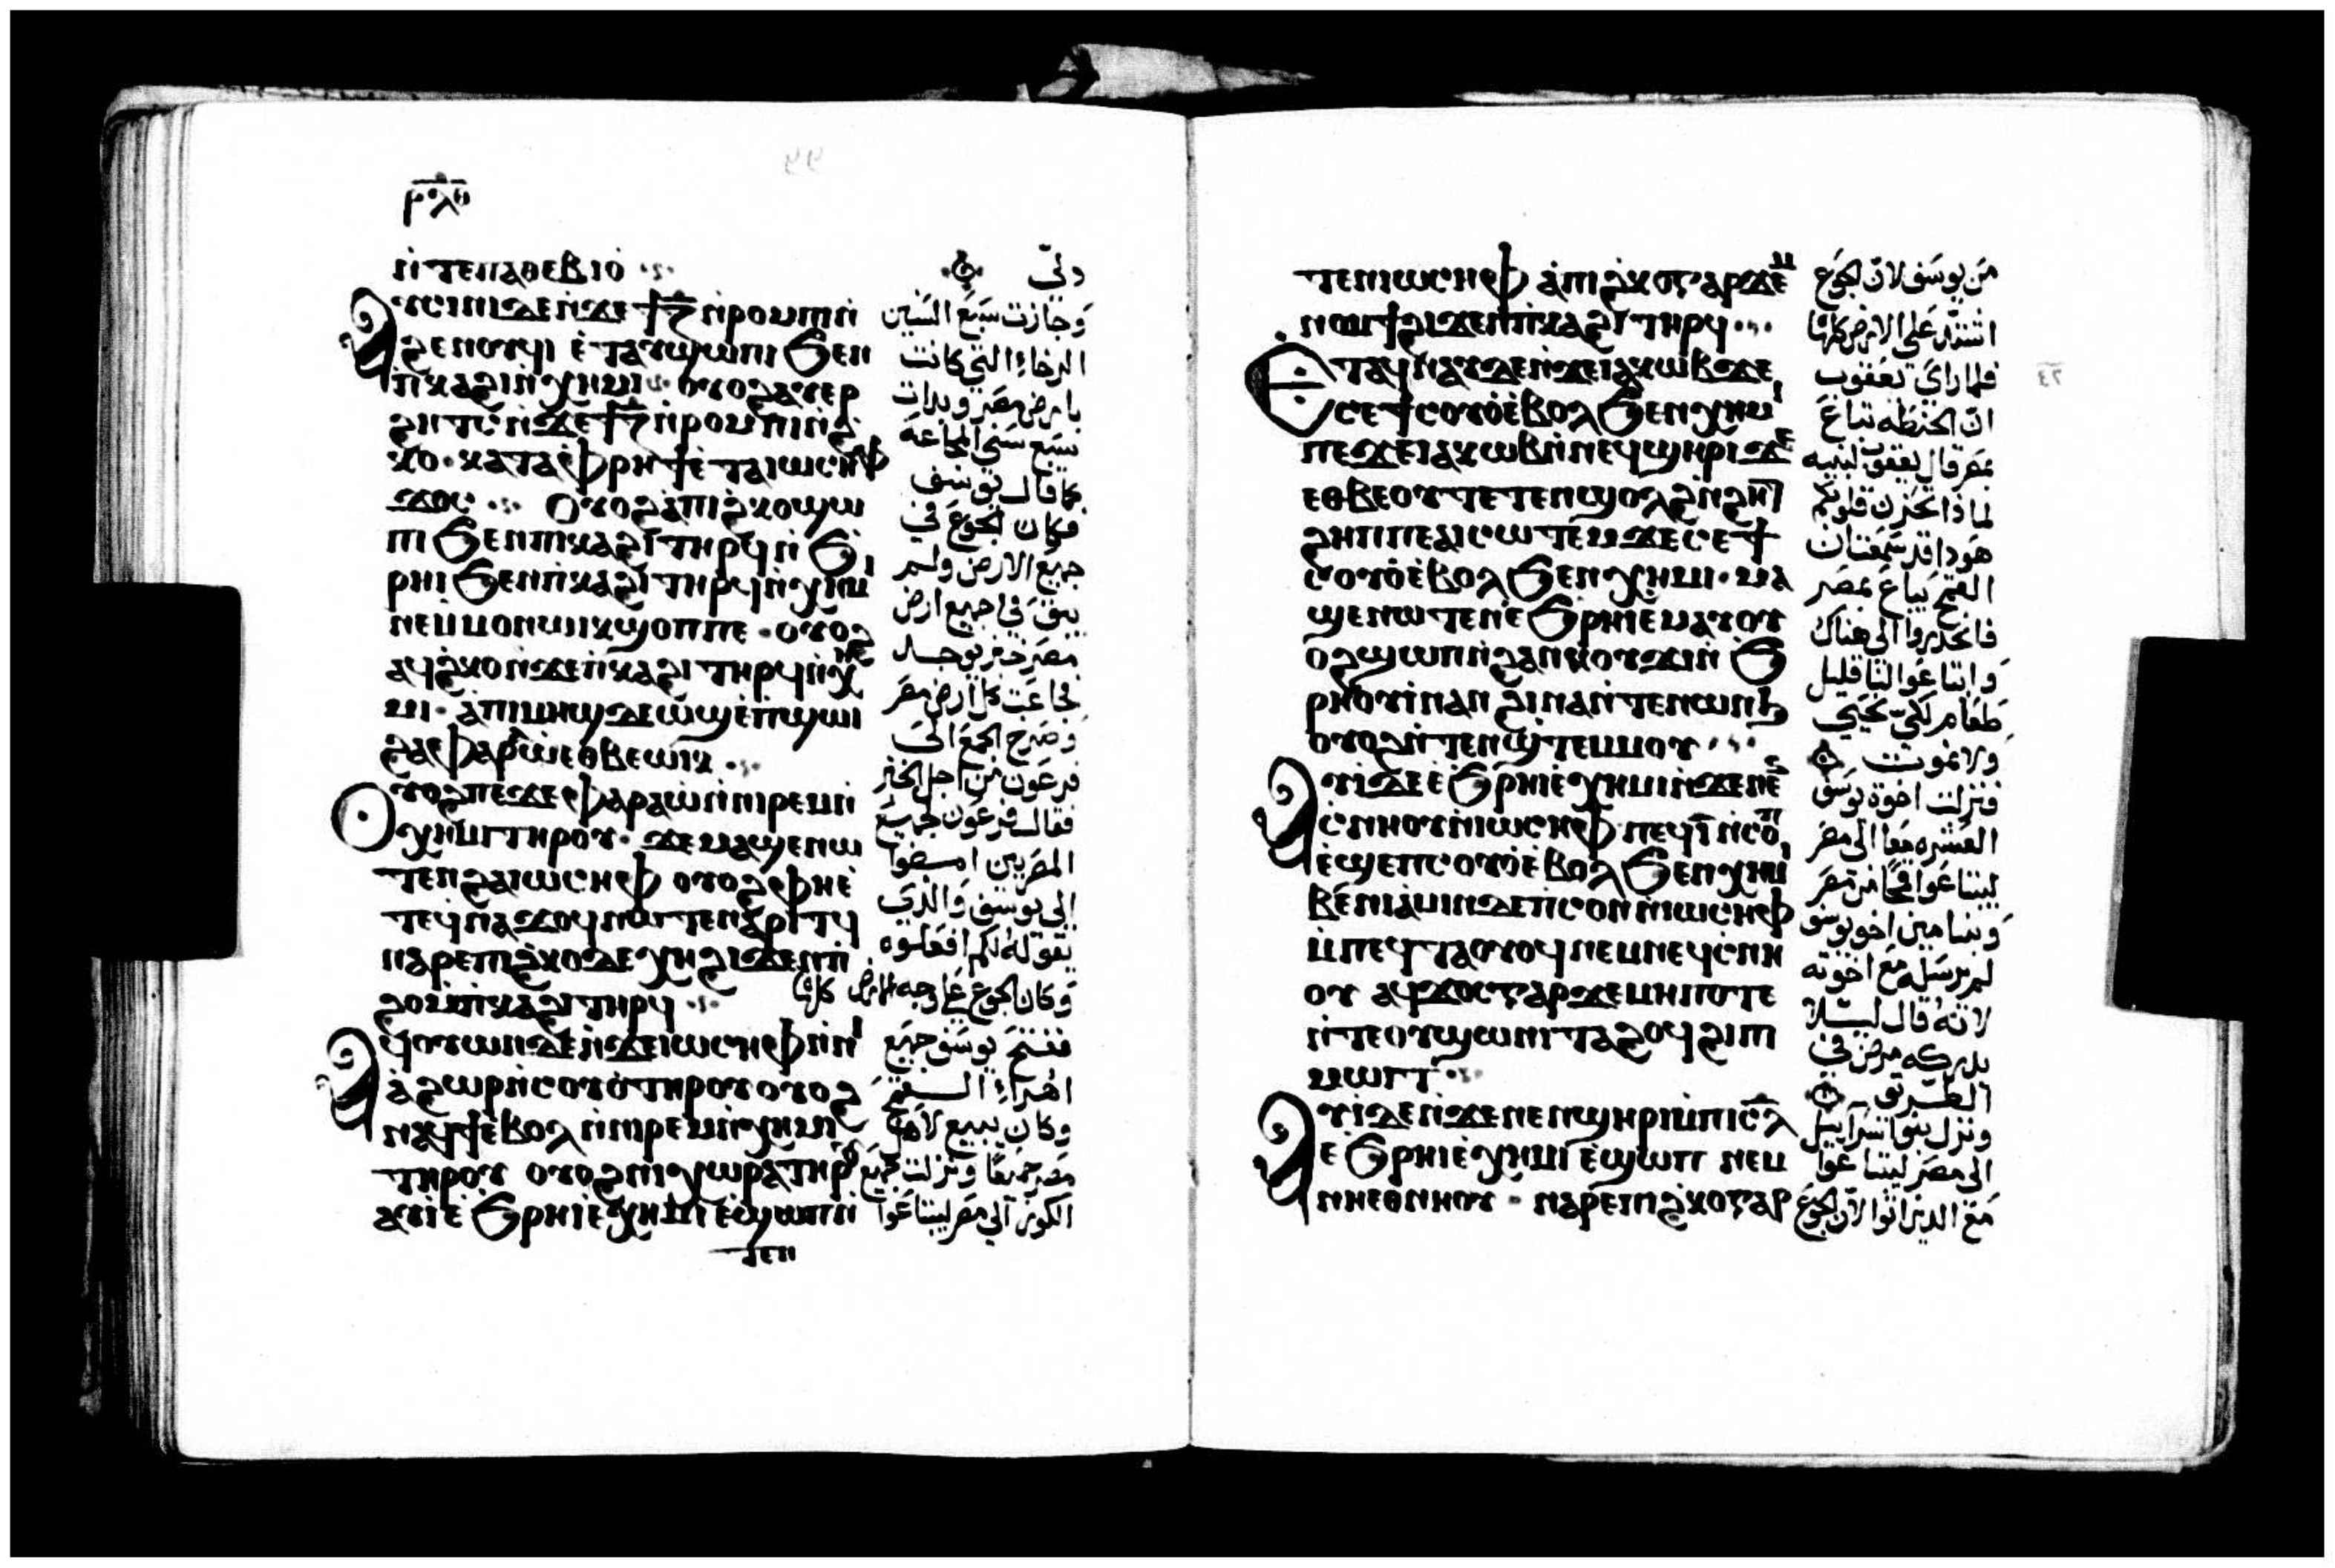 ⲣⲗⲑ
ⲛ̀ⲧⲉⲡⲁⲑⲉⲃⲓⲟ̀
ⲁⲩⲥⲓⲛⲓⲇⲉⲛ̀ϫⲉϯⲍ̄ⲛ̀ⲣⲟⲙⲡⲓⲛ̀
ϩⲉⲛⲟⲩϥⲓ ⲉ̀ⲧⲁⲩϣⲱⲡⲓ ϧⲉⲛ
ⲡ̀ⲕⲁϩⲓⲛ̀ⲭⲏⲙⲓ ⲟⲩⲟϩⲁⲩⲉⲣ
ϩⲏⲧⲥ̀ⲛ̀ϫⲉϯⲍ̄ⲛ̀ⲣⲟⲙⲡⲓⲛ̀ϩ̀
ⲕⲟ ⲕⲁⲧⲁⲫ̀ⲣⲏϯⲉ̀ⲧⲁⲓⲱⲥⲏⲫ
ϫⲟⲥ ⲟⲩⲟϩⲁ̀ⲡⲓϩ̀ⲕⲟϣⲱ
ⲡⲓ ϧⲉⲛⲡⲓⲕⲁϩⲓ ⲧⲏⲣϥⲛ̀ ϧ̀
ⲣⲏⲓ ϧⲉⲛⲡ̀ⲕⲁϩⲓ ⲧⲏⲣϥⲛ̀ⲭⲏⲙⲓ
ⲛⲉⲙⲙⲟⲛⲱⲓⲕϣⲟⲡⲡⲉ ⲟⲩⲟϩ
ⲁϥϩ̀ⲕⲟⲛ̀ϫⲉⲡ̀ⲕⲁϩⲓ ⲧⲏⲣϥⲛ̀ⲭⲏ
ⲙⲓ ⲁ̀ⲡⲓⲙⲏϣⲇⲉⲱϣⲉ̀ⲡ̀ϣⲱⲓ
ϩⲁⲫⲁⲣⲁⲱ̀ⲉⲑⲃⲉⲱⲓⲕ
ⲟⲩⲟϩⲡⲉϫⲉⲫⲁⲣⲁⲱ̀ⲛ̀ⲛⲓⲣⲉⲙⲛ̀
ⲭⲏⲙⲓⲧⲏⲣⲟⲩ ϫⲉⲙⲁϣⲉⲛⲱ
ⲧⲉⲛϩⲁⲓⲱⲥⲏⲫ ⲟⲩⲟϩⲫⲏⲉ̀
ⲧⲉϥⲛⲁϫⲟϥⲛⲱⲧⲉⲛⲁ̀ⲣⲓⲧϥ
ⲛⲁⲣⲉⲡⲓϩ̀ⲕⲟⲇⲉⲭⲏϩⲓϫⲉⲛⲡ̀
ϩⲟⲙ̀ⲡ̀ⲕⲁϩⲓ ⲧⲏⲣϥ
ⲁϥⲟⲩⲱⲛⲇⲉⲛ̀ϫⲉⲓⲱⲥⲏⲫⲛ̀ⲛⲓ
ⲁ̀ϩⲱⲣⲛ̀ⲥⲟⲩⲟ̀ⲧⲏⲣⲟⲩⲟⲩⲟϩ
ⲛⲁϥϯⲉ̀ⲃⲟⲗⲛ̀ⲛⲓⲣⲉⲙⲛ̀ⲭⲏⲙⲓ
ⲧⲏⲣⲟⲩ ⲟⲩⲟϩⲛⲓⲭⲱⲣⲁⲧⲏⲣⲟⲩ
ⲁⲩⲓ̀ⲉ̀ϧ̀ⲣⲏⲓⲉ̀ⲭⲏⲙⲓ ⲉ̀ϣⲱⲡⲛ̀
ⲧⲉⲛ
ولى
وَجازت سَبعَ السّنين
الرخاءِ التي كانت
بارض مصر وبدات
سَبع سنى المجاعَة
كما قال يوسف
فكان الجوع في
جميع الارض ولم
يبق في جميع ارض
مصر خبز يوجد
فجاعَت كل ارض مصر
وصَرخ الجمع الى
فرعَون من اجل الخبز
فقال فرعون لجميع
المصريين امضوا
إلى يوسف والذي
يقوله لكم افعلوه
وكان الجوع على وجه الارض كلها
ففتح يوسف جميع
اهراءِ القمح
وكان يبيع لاهل
مصر جميعًا ونزلت جميع
الكور الى مصر ليبتاعَوا
ⲧⲉⲛⲓⲱⲥⲏⲫ ⲁ̀ⲡⲓϩ̀ⲕⲟⲅⲁⲣϫⲉⲙ
ⲛⲟⲙϯϩⲓϫⲉⲛⲡ̀ⲕⲁϩⲓ ⲧⲏⲣϥ
ⲉⲧⲁϥⲛⲁⲩⲇⲉⲛ̀ϫⲉⲓⲁⲕⲱⲃϫⲉ
ⲥⲉϯⲥⲟⲩⲟ̀ⲉ̀ⲃⲟⲗ ϧⲉⲛⲭⲏⲙⲓ
ⲡⲉϫⲉⲓⲁⲕⲱⲃⲛ̀ⲛⲉϥϣⲏⲣⲓ ϫⲉ
ⲉⲑⲃⲉⲟⲩⲧⲉⲧⲉⲛϣⲟⲗϩⲛ̀ϩⲏⲧ
ϩⲏⲡⲡⲉⲁⲓⲥⲱⲧⲉⲙϫⲉⲥⲉϯ
ⲥⲟⲩⲟ̀ⲉ̀ⲃⲟⲗ ϧⲉⲛⲭⲏⲙⲓ ⲙⲁ
ϣⲉⲛⲱⲧⲉⲛⲉ̀ϧ̀ⲣⲏⲓⲉ̀ⲙⲁⲩⲟⲩ
ⲟϩϣⲱⲡⲛ̀ϩⲁⲛⲕⲟⲩϫⲓⲛ̀ ϧ̀
ⲣⲏⲟⲩⲓ̀ⲛⲁⲛ ϩⲓⲛⲁⲛ̀ⲧⲉⲛⲱⲛϧ
ⲟⲩⲟϩⲛ̀ⲧⲉⲛϣ̀ⲧⲉⲙⲙⲟⲩ
ⲁⲩⲓ̀ⲇⲉⲉ̀ϧ̀ⲣⲏⲓⲉ̀ⲭⲏⲙⲓⲛ̀ϫⲉⲛⲉⲥ
ⲥ̀ⲛⲏⲟⲩⲛ̀ⲓⲱⲥⲏⲫ ⲡⲉϥⲓ̄ⲛ̀ⲥⲟⲛ
ⲉ̀ϣⲉⲡⲥⲟⲩⲟ̀ⲉ̀ⲃⲟⲗ ϧⲉⲛⲭⲏⲙⲓ
ⲃⲉⲛⲓⲁⲙⲓⲛⲇⲉⲡ̀ⲥⲟⲛⲛ̀ⲓⲱⲥⲏⲫ
ⲙ̀ⲡⲉϥⲧⲁⲟⲩⲟϥⲛⲉⲙⲛⲉϥⲥ̀ⲛⲏ
ⲟⲩ ⲁϥϫⲟⲥⲅⲁⲣϫⲉⲙⲏⲡⲟⲧⲉ
ⲛ̀ⲧⲉⲟⲩϣⲱⲛⲓⲧⲁϩⲟϥϩⲓⲡⲓ
ⲙⲱⲓⲧ
ⲁⲩⲓ̀ⲇⲉⲛ̀ϫⲉⲛⲉⲛϣⲏⲣⲓⲙ̀ⲡⲓⲥⲗ
ⲉ̀ϧ̀ⲣⲏⲓⲉ̀ⲭⲏⲙⲓ ⲉ̀ϣⲱⲡ ⲛⲉⲙ
ⲛⲏⲉⲑⲛⲏⲟⲩ ⲛⲁⲣⲉⲡⲓϩ̀ⲕⲟⲅⲁⲣ
من يوسَف لانّ الجوع
اشتدّ على الارض كلها
فلما رايَ يَعقوب
انّ الحنطه تباع
بمصر قال يعقوب لبنيه
لماذا تحزن قلوبكم
هَوذا قد سَمعَت ان
القمح يباع بمصر
فانحدروا الى هناك
وابتاعَوا لنا قليل
طعَام لكي نحيَي
ولا نموت
فنزلت اخوَة يوسَف
العشره معًا الى مصر
ليبتاعَوا قمحًا من مصر
وبنيامين اخو يوسف
لم يرسَله مَع اخوته
لانّه قال لئلا
يدركه مرض في
الطريق
ونزل بنوا اسرَاييل
الى مصر ليبتاعوا
مَع الذين اتوا لان الجوع